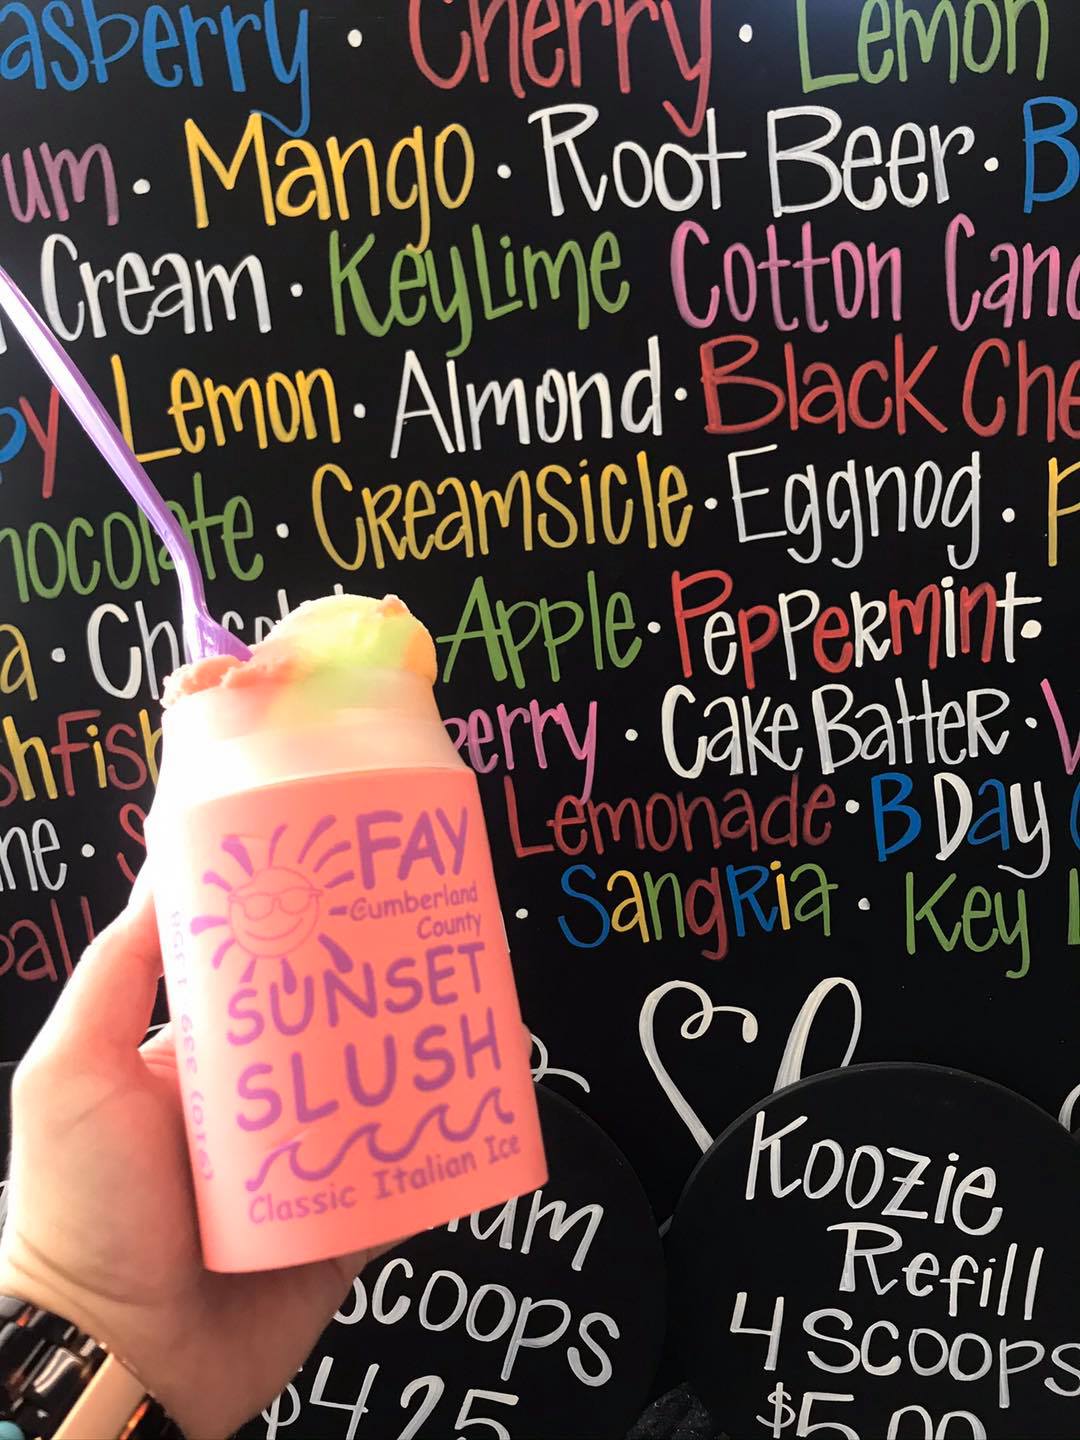 asberry • Cherry • Lemon
um • Mango • Root Beer • B
Cream • Key Lime Cotton Can
py Lemon • Almond • Black Che
hocolate • Creamsicle • Eggnog • P
a • Ch Apple • Peppermint •
hFish berry • Cake Batter •
ne • S Lemonade • B Day
ball • Sangria • Key
FAY
-Cumberland
County
SUNSET
SLUSH
Classic Italian Ice
um
Scoops
$4.25
Koozie
Refill
4 Scoops
$5.00